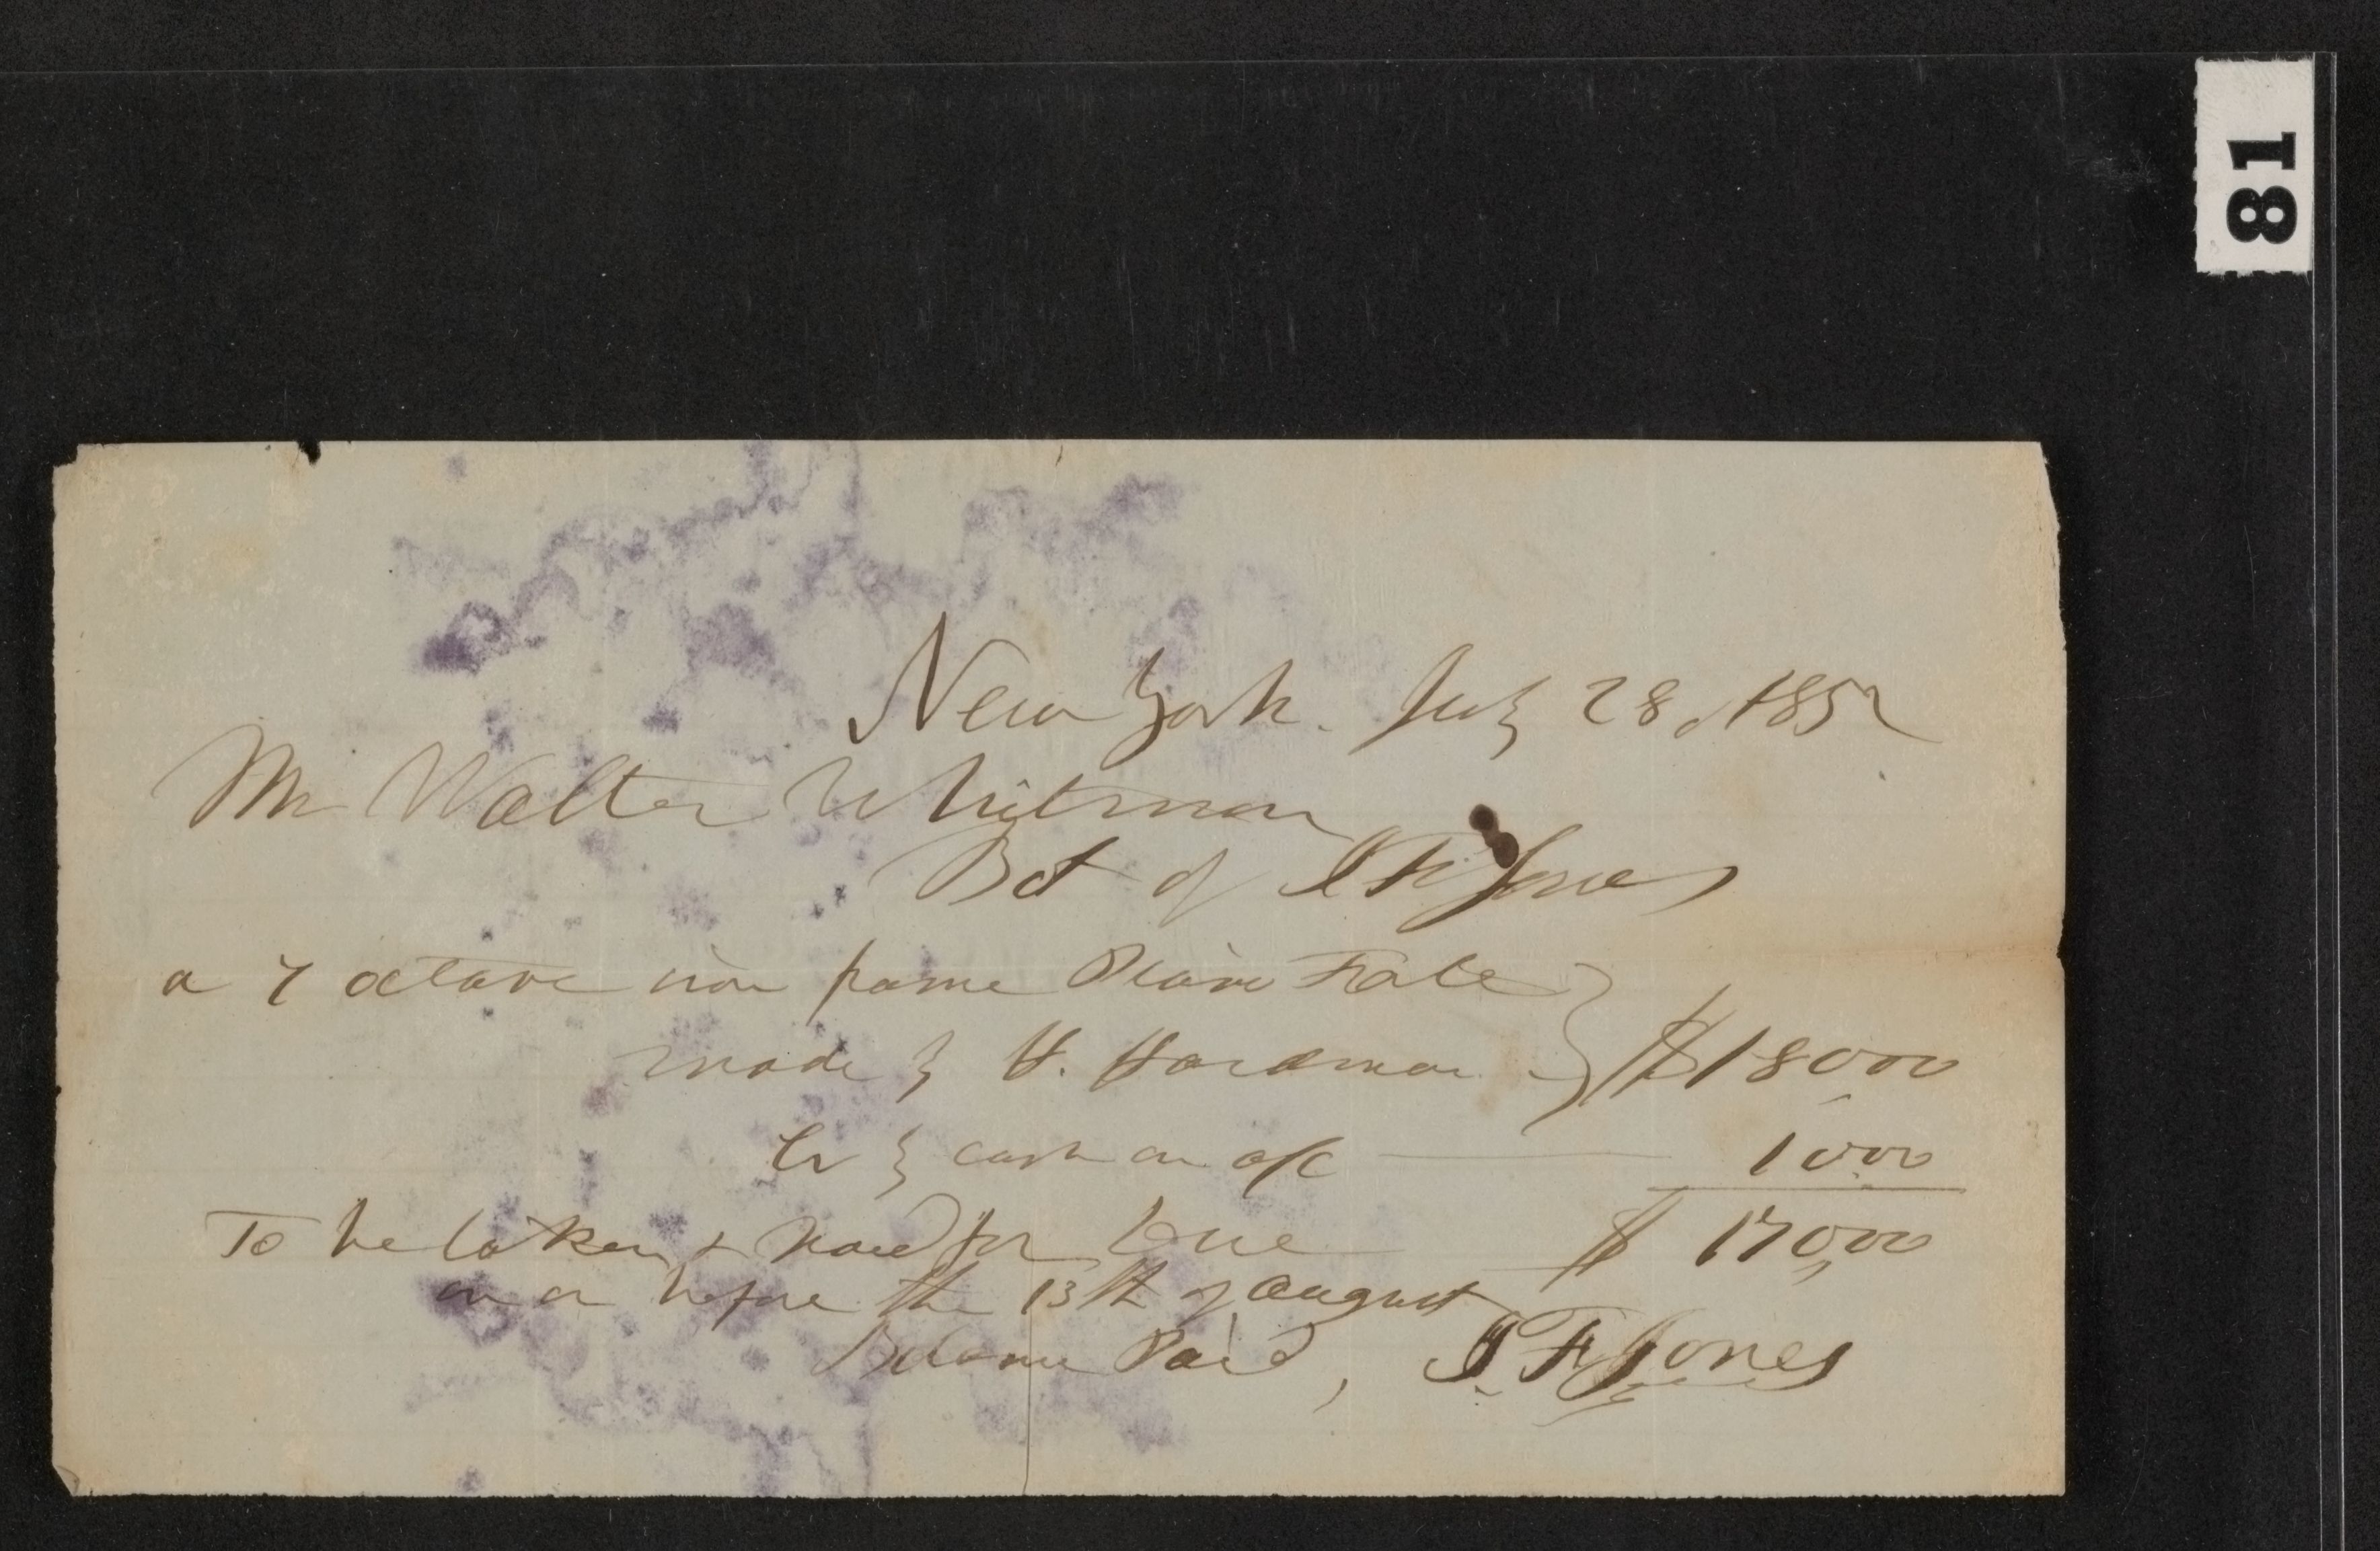 81
New York. July 28, 1852
Mr Walter Whitman
Bot of I F Jones
a 7 octave iron frame Piano Forte
made by H. Hardman $180 00
Cr by cash on a/c 10 00
To be taken & paid for $ 170,00
on or before the 13th of August
Balance Paid, I F Jones